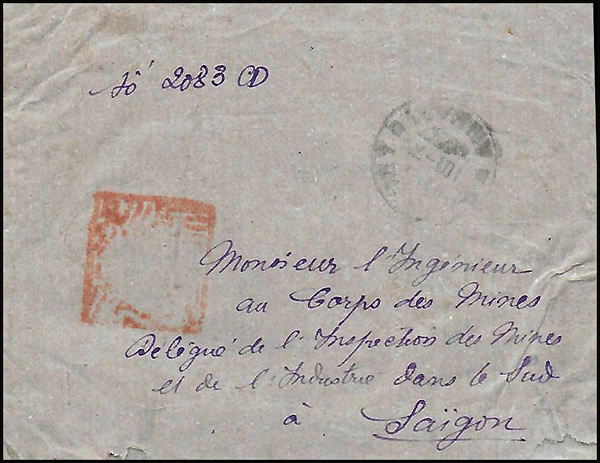 Số 2083 CD
Monsieur l'Ingénieur
au Corps des Mines
Délégué de l'Inspection des Mines
et de l'Industrie dans le Sud
à Saïgon